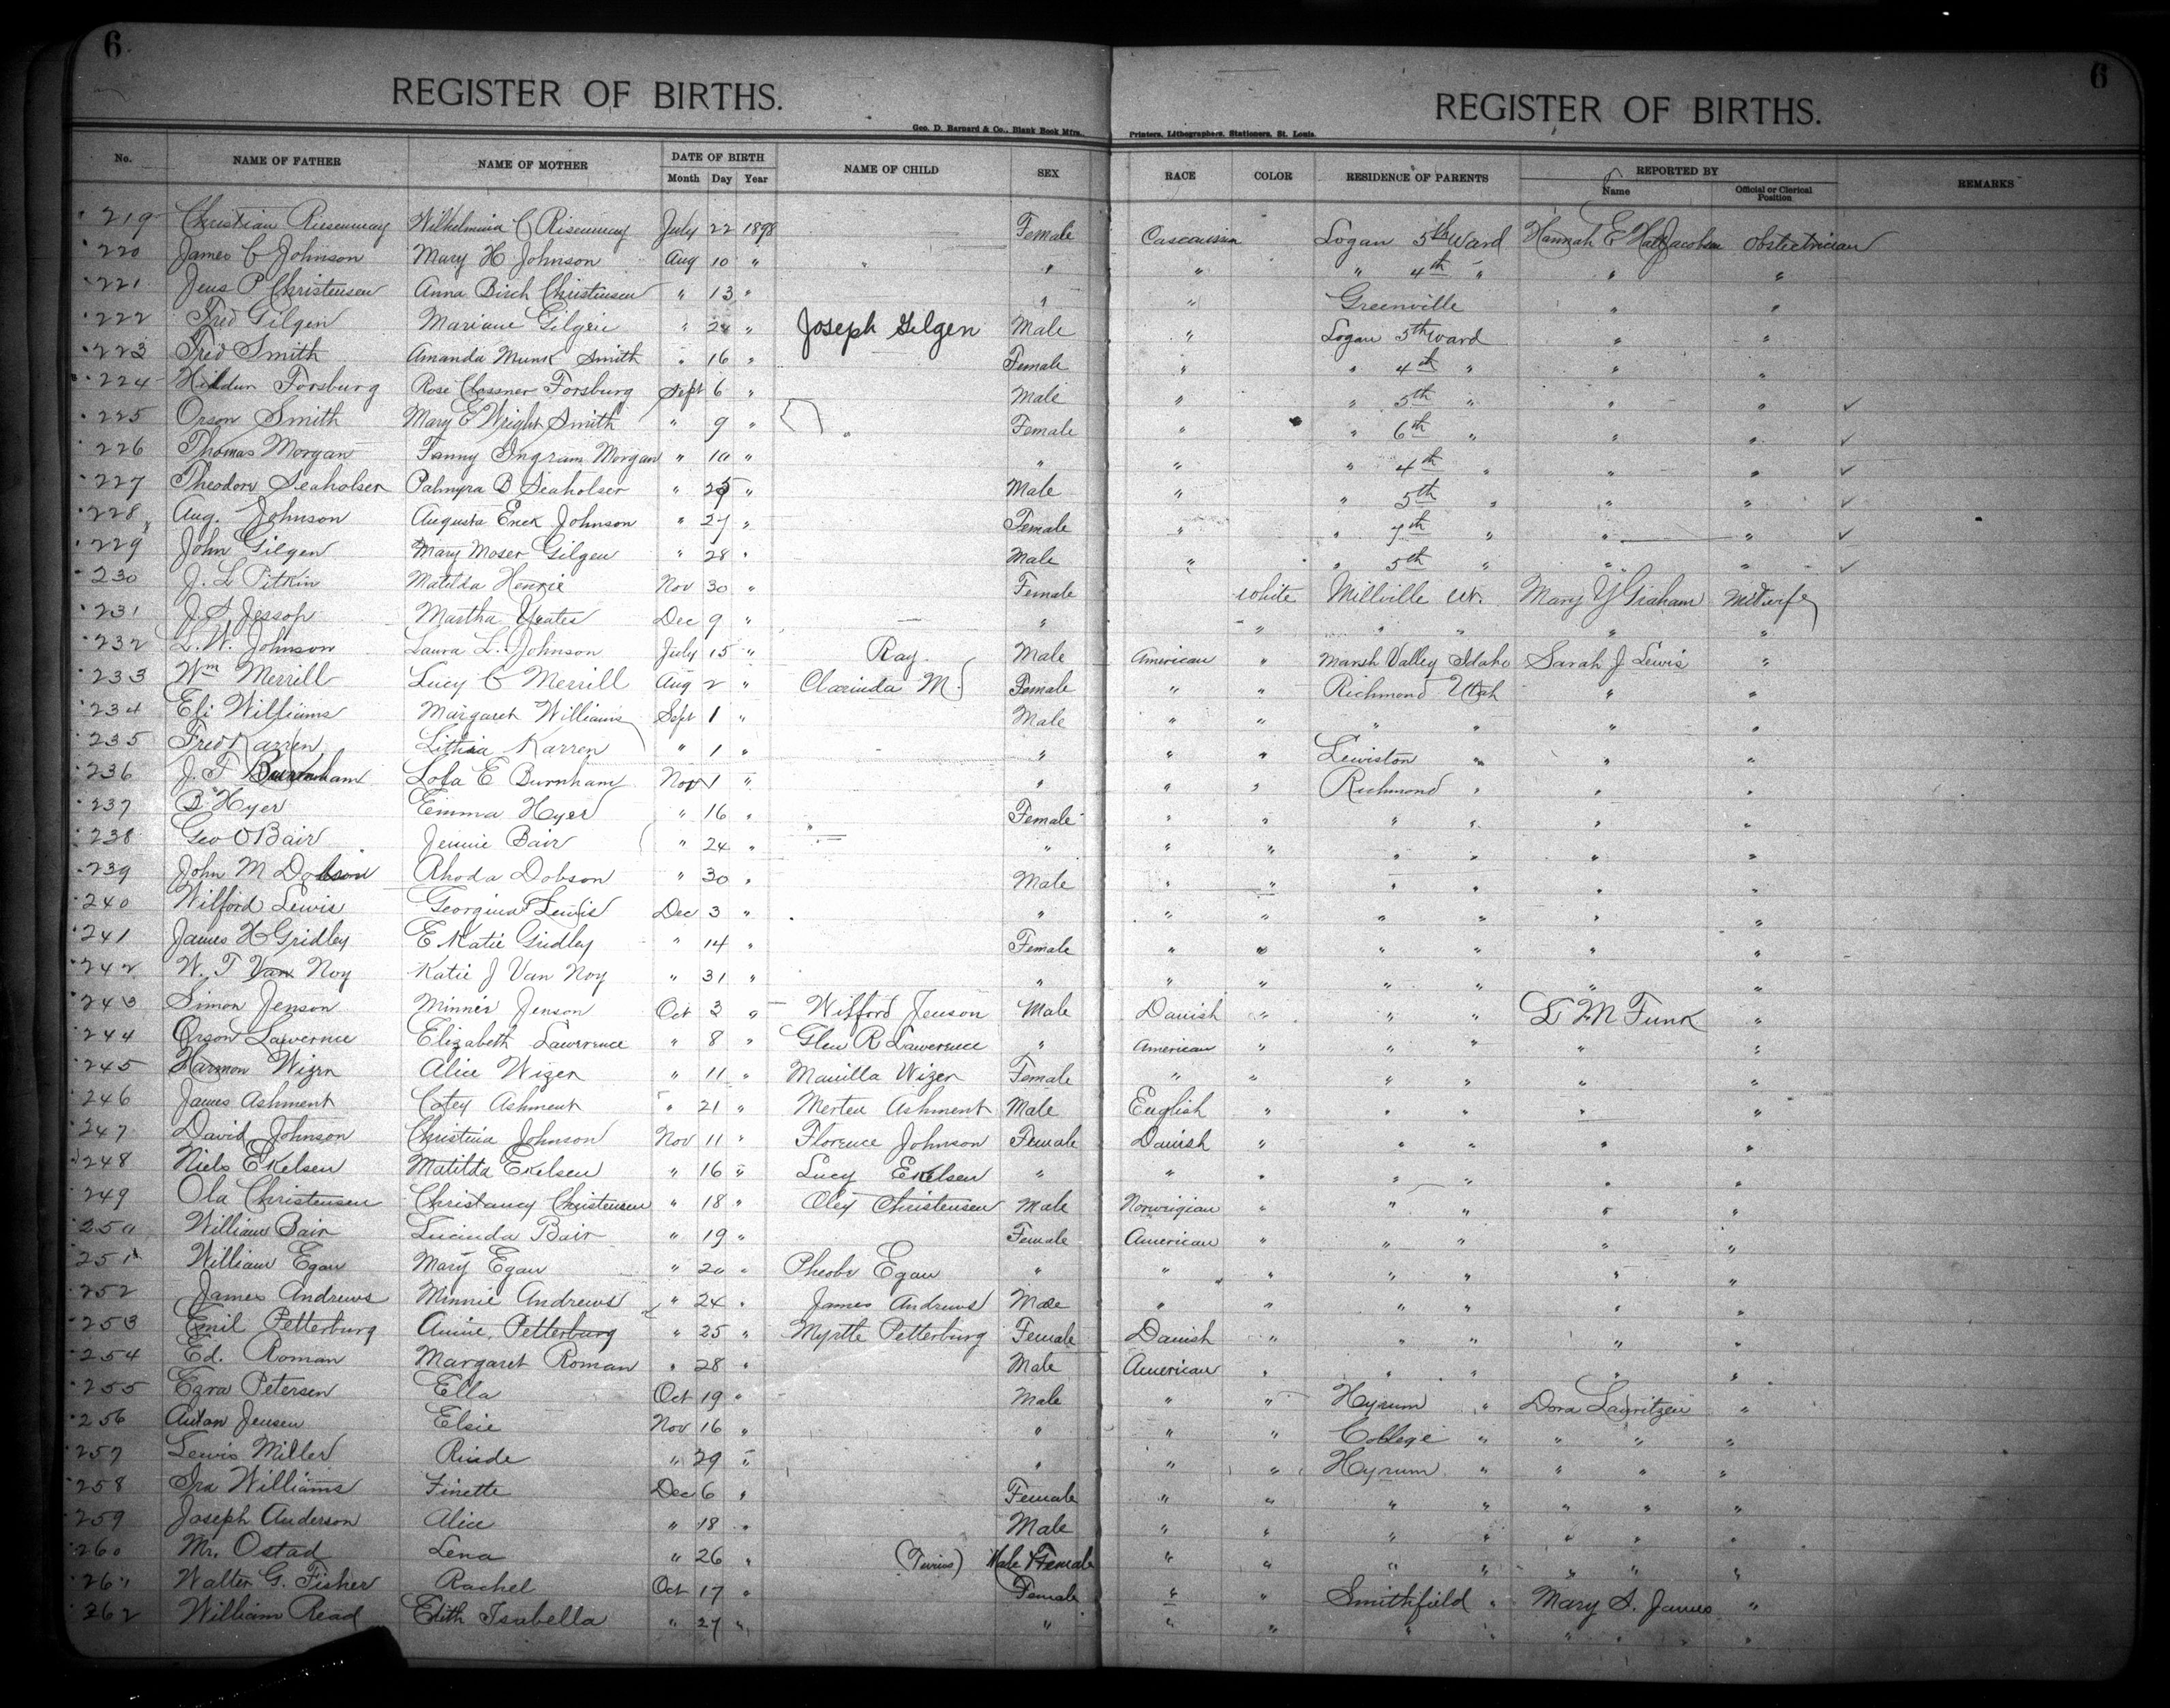 6
6
REGISTER OF BIRTHS.
REGISTER OF BIRTHS.
Geo. D. Barnard & Co., Blank Book Mfrs.,
Printers, Lithographers, Stationers, St. Louis.
No. NAME OF FATHER NAME OF MOTHER DATE OF BIRTH Month Day Year NAME OF CHILD SEX RACE COLOR RESIDENCE OF PARENTS REPORTED BY Name Official or Clerical Position REMARKS
219 Christian Risenmay Wilhelmina C Risenmay July 22 1898 Female Logan 5th Ward Hannah E Obstectrician
220 James C Johnson Mary H Johnson Aug 10 " " " " 4th " " "
221 Jens P Christensen Anna Birch Christensen " 13 " " " Greenville " "
222 Fred Gilgen Mariane Gilgen " 24 " Joseph Gilgen Male " Logan 5th Ward " "
223 Fred Smith Amanda Munk Smith " 16 " Female " " 4th " " "
224 Forsburg Rose Clossner Forsburg Sept 6 " Male " " 5th " " " ✓
225 Orson Smith Mary E Wright Smith " 9 " Female " " 6th " " " ✓
226 Thomas Morgan Fanny Ingram Morgan " 10 " " " " 4th " " " ✓
227 Theodore Seaholser Palmyra B Seaholser " 25 " Male " " 5th " " " ✓
228 Aug. Johnson Augusta Johnson " 27 " Female " " 7th " " " ✓
229 John Gilgen Mary Moser Gilgen " 28 " Male " " 5th " " " ✓
230 J. L Pitkin Matilda Henrie Nov 30 " Female white Millville Ut. Mary Y Graham Midwife
231 J. S Jessop Martha Yeates Dec 9 " " " " " " "
232 L. W. Johnson Laura L. Johnson July 15 " Ray Male American " Marsh Valley Idaho Sarah J Lewis "
233 Wm Merrill Lucy C Merrill Aug 2 " Clarinda M. Female " " Richmond Utah " "
234 Eli Williams Margaret Williams Sept 1 " Male " " " " " "
235 Fred Karren Karren " 1 " " " " Lewiston " " "
236 J. T Burnham Lola E Burnham Nov 1 " " " " Richmond " " "
237 B Hyer Emma Hyer " 16 " Female " " " " " "
238 Geo O Bair Jennie Bair " 24 " " " " " " " "
239 John M Dobson Rhoda Dobson " 30 " Male " " " " " "
240 Wilford Lewis Georgina Lewis Dec 3 " " " " " " " "
241 James H Gridley E Katie Gridley " 14 " Female " " " " " "
242 W. T Van Noy Katie J Van Noy " 31 " " " " " " " "
243 Simon Jenson Minnie Jenson Oct 3 " Wilford Jenson Male Danish " " " L M Funk "
244 Orson Lawernce Elizabeth Lawrence " 8 " Glen R Lawerence " American " " " " "
245 Harmon Wizen Alice Wizen " 11 " Manilla Wizen Female " " " " " "
246 James Ashment Cotey Ashment " 21 " Merten Ashment Male English " " " " "
247 David Johnson Christina Johnson Nov 11 " Florence Johnson Female Danish " " " " "
248 Niels Ekelsen Matilda Ekelsen " 16 " Lucy Ekelsen " " " " " " "
249 Ola Christensen Christensen " 18 " Oley Christensen Male Norwigian " " " " "
250 William Bair Lucinda Bair " 19 " Female American " " " " "
251 William Egan Mary Egan " 20 " Pheobe Egan " " " " " " "
252 James Andrews Minnie Andrews " 24 " James Andrews Male " " " " " "
253 Emil Petterburg Annie Petterburg " 25 " Myrtle Petterburg Female Danish " " " " "
254 Ed. Roman Margaret Roman " 28 " Male American " " " " "
255 Ezra Petersen Ella Oct 19 " Male " " Hyrum " Dora Lauritzen "
256 Anton Jensen Elsie Nov 16 " " " " College " " " "
257 Lewis Miller Rinde " 29 " " " " Hyrum " " " "
258 Ira Williams Finette Dec 6 " Female " " " " " " "
259 Joseph Anderson Alice " 18 " Male " " " " " " "
260 Mr. Ostad Lena " 26 " (Twins) Male & Female " " " " " " "
261 Walter G. Fisher Rachel Oct 17 " Female " " Smithfield " Mary S. James "
262 William Read Edith Isabella " 27 " " " " " " " " "